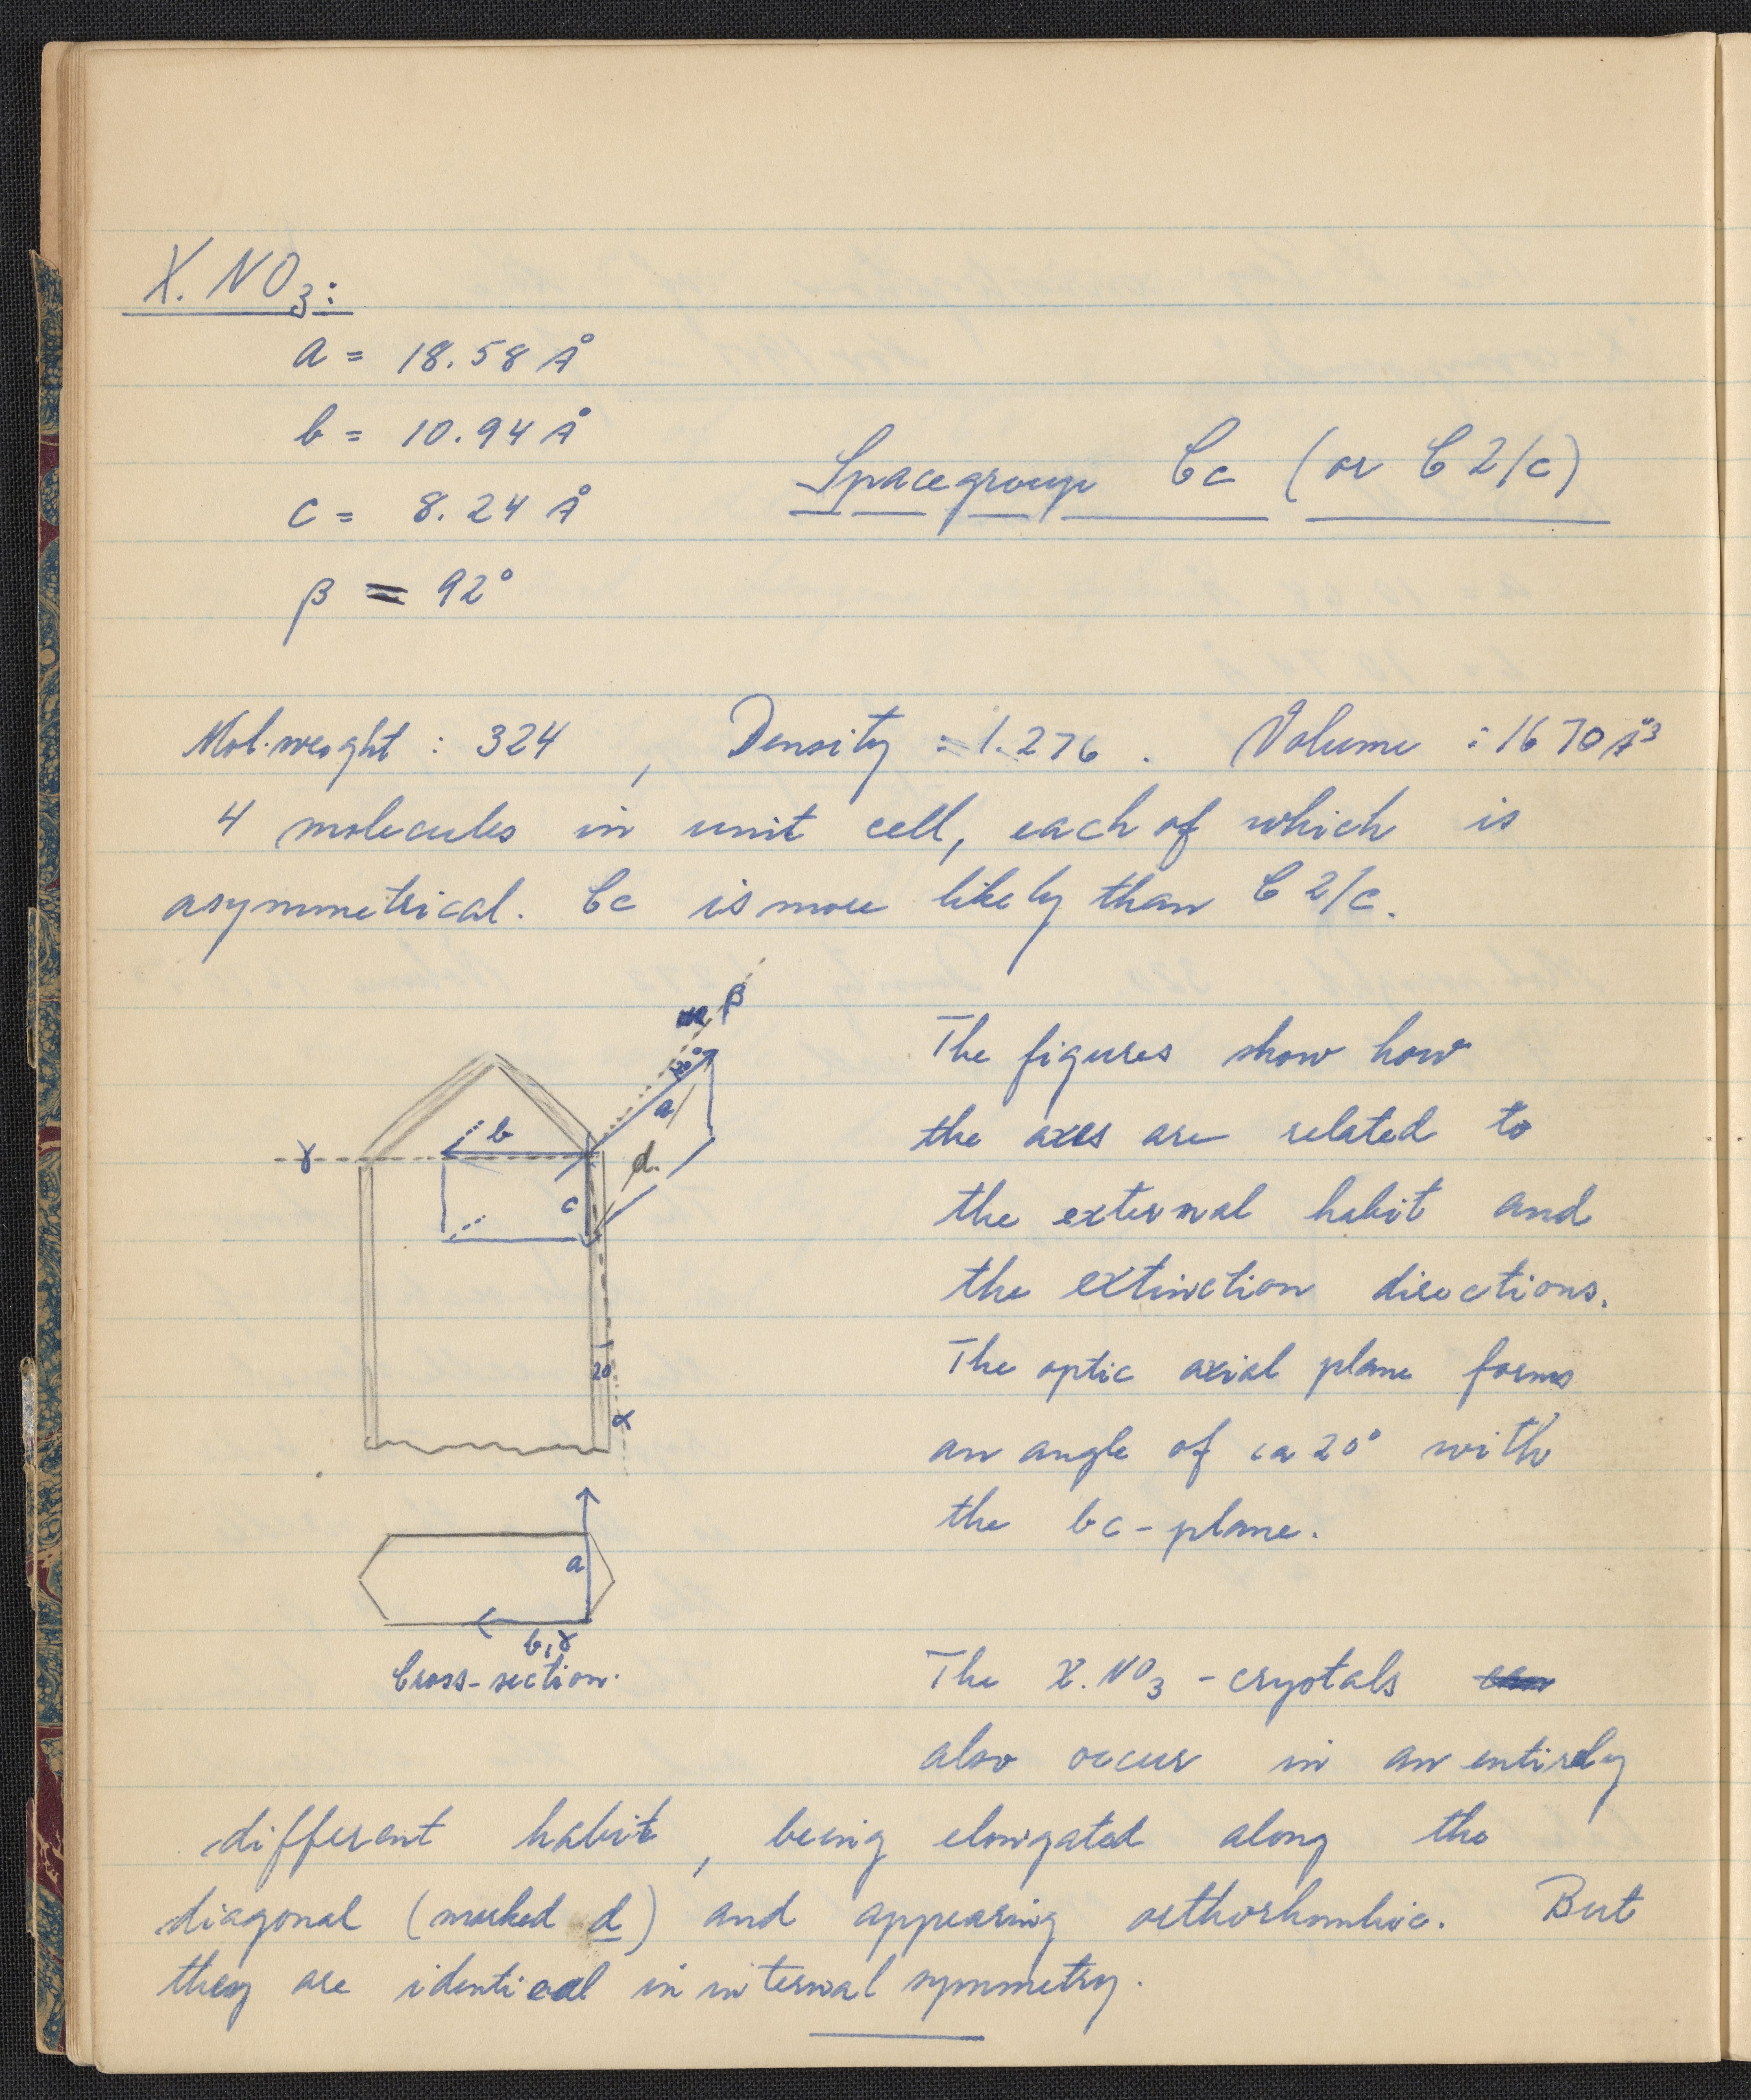 X. NO3:
a = 18.58 Å
b = 10.94 Å
c = 8.24 Å
Spacegroup Cc (or C 2/c)
β = 92°
Mol. weight : 324 , Density : 1.276 . Volume : 1670 Å3
4 molecules in unit cell, each of which is
asymmetrical. Cc is more likely than C 2/c.
β
20°
a
b
γ
d.
c
20
α
The figures show how
the axes are related to
the external habit and
the extinction directions.
The optic axial plane forms
an angle of ca 20° with
the bc-plane.
a
b, γ
Cross-section.
The X. NO3 - crystals
also occur in an entirely
different habit, being elongated along the
diagonal (marked d) and appearing orthorhombic. But
they are identical in internal symmetry.